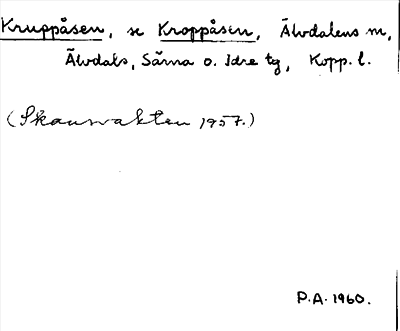 Kruppåsen, se Kroppåsen, Älvdalens m,
Älvdals, Särna o. Idre tg, Kopp. l.
(Skansvakten 1957.)
P.A. 1960.